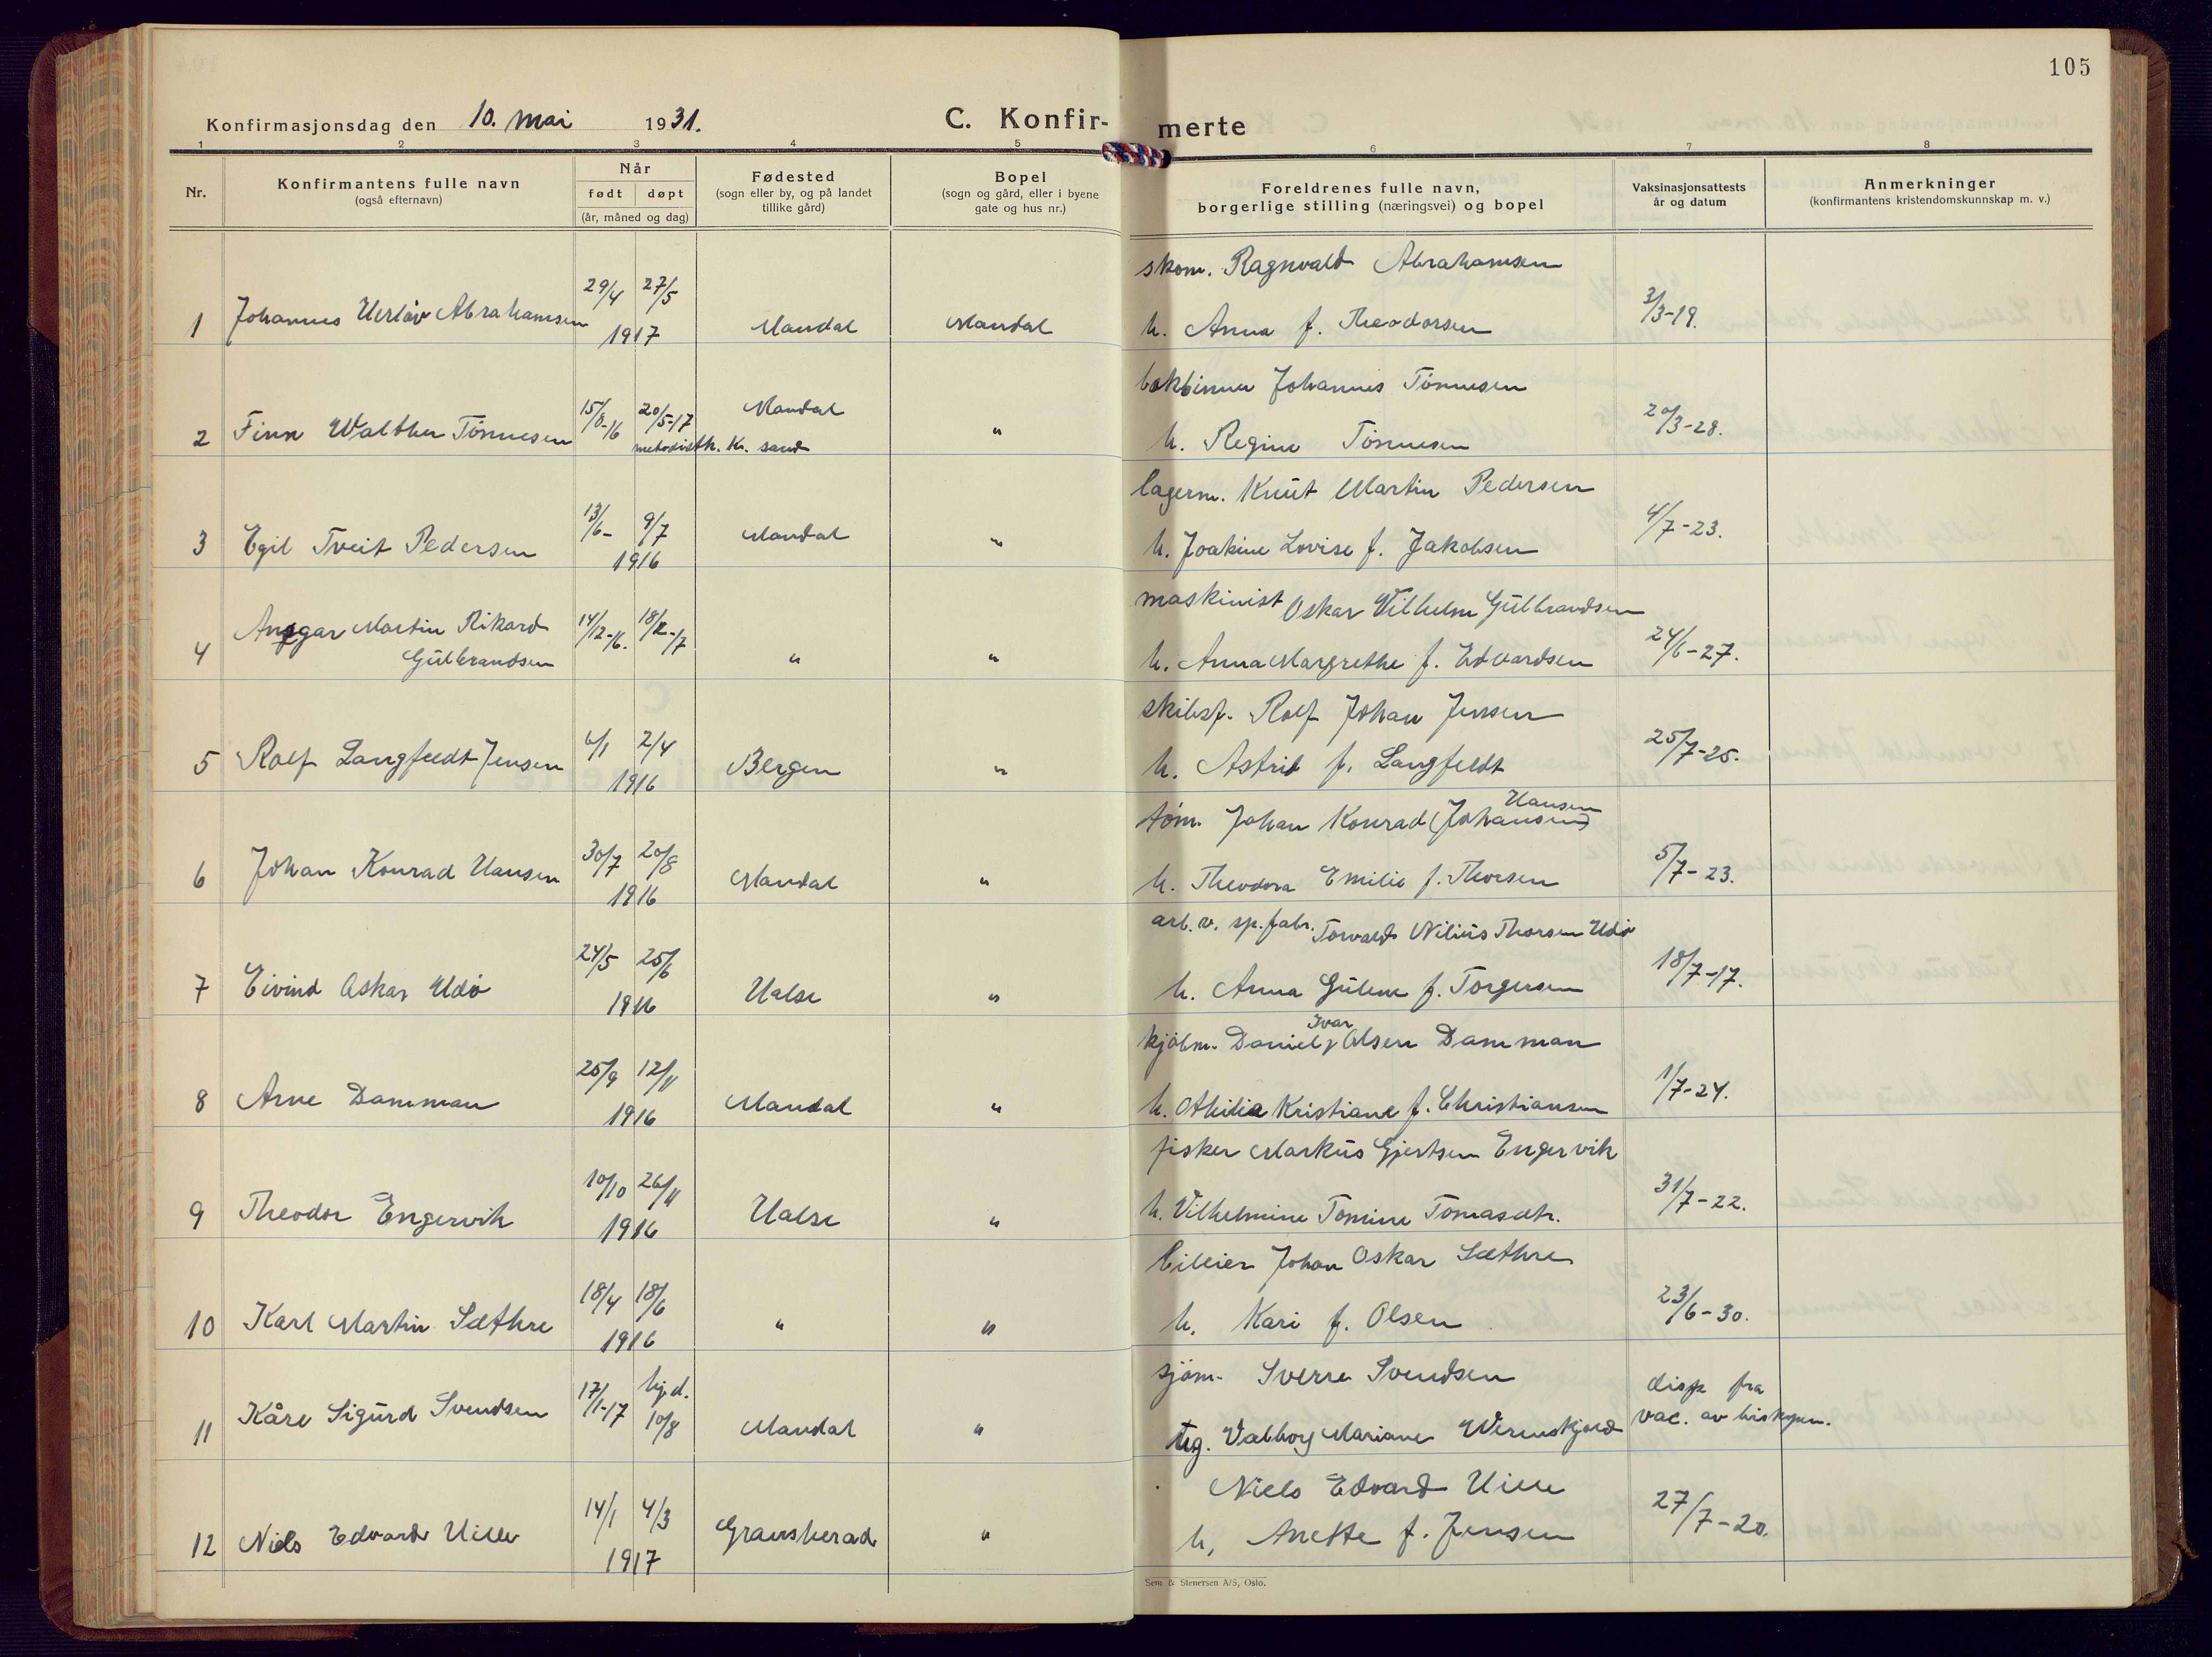 105
Konfirmasjonsdag den 10. mai 1931.
C. Konfir-merte
1 2 3 4 5 6 7 8
Nr.
Konfirmantens fulle navn
(også efternavn)
Når
født døpt
(år, måned og dag)
Fødested
(sogn eller by, og på landet
tillike gård)
Bopel
(sogn og gård, eller i byene
gate og hus nr.)
Foreldrenes fulle navn,
borgerlige stilling (næringsvei) og bopel
Vaksinasjonsattests
år og datum
Anmerkninger
(konfirmantens kristendomskunnskap m. v.)
skom. Ragnvald Abrahamsen
29/4 27/5
1 Johannes Abrahamsen 1917 Mandal Mandal h. Anna f. Theodorsen 3/3-19.
bokbinner Johannes Tönnesen
15/8-16 20/5-17 Mandal
2 Finn Walther Tönnesen metodistk. Kr. sand " h. Regine Tönnesen 20/3-28.
lagerm. Knut Martin Pedersen
13/6- 9/7
3 Egil Tveit Pedersen 1916 Mandal " h. Joakine Lovise f. Jakobsen 4/7-23.
maskinist Oskar Vilhelm Gulbrandsen
4 Ansgar Martin Rikard 14/12-16. 18/2-17
Gulbrandsen " " h. Anna Margrethe f. Edvardsen 24/6-27.
skibsf. Rolf Johan Jensen
6/1 2/4
5 Rolf Langfeldt Jensen 1916 Bergen " h. Astrid f. Langfeldt 25/7-25.
Hansen
töm. Johan Konrad (Johansen)
30/7 20/8
6 Johan Konrad Hansen 1916 Mandal " h. Theodora Emilie f. Thorsen 5/7-23.
arb. v. sp. fabr. Torvald Nilius Thorsen Udö
24/5 25/6
7 Eivind Oskar Udö 1916 Halse " h. Anna Gulene f. Torgersen 18/7-17.
Ivar
kjöbm. Daniel Olsen Damman
25/9 12/11
8 Arne Damman 1916 Mandal " h. Othilie Kristiane f. Christiansen 1/7-24.
fisker Markus Gjertsen Engervik
10/10 26/11
9 Theodor Engervik 1916 Halse " h. Vilhelmine Tomine Tomasdtr. 31/7-22.
Johan Oskar Sæthre
18/4 18/6
10 Karl Martin Sæthre 1916 " " h. Kari f. Olsen 23/6-30.
sjöm. Sverre Svendsen
17/1-17 hj.d. 10/8
11 Kåre Sigurd Svendsen Mandal " ug. Valborg Mariane Werenskjold
disp fra
vac. av biskopen.
Niels Edvard Hille
14/1 4/3
12 Niels Edvard Hille 1917 Gransherad " h. Anette f. Jensen 27/7-20.
Sem & Stenersen A/S, Oslo.